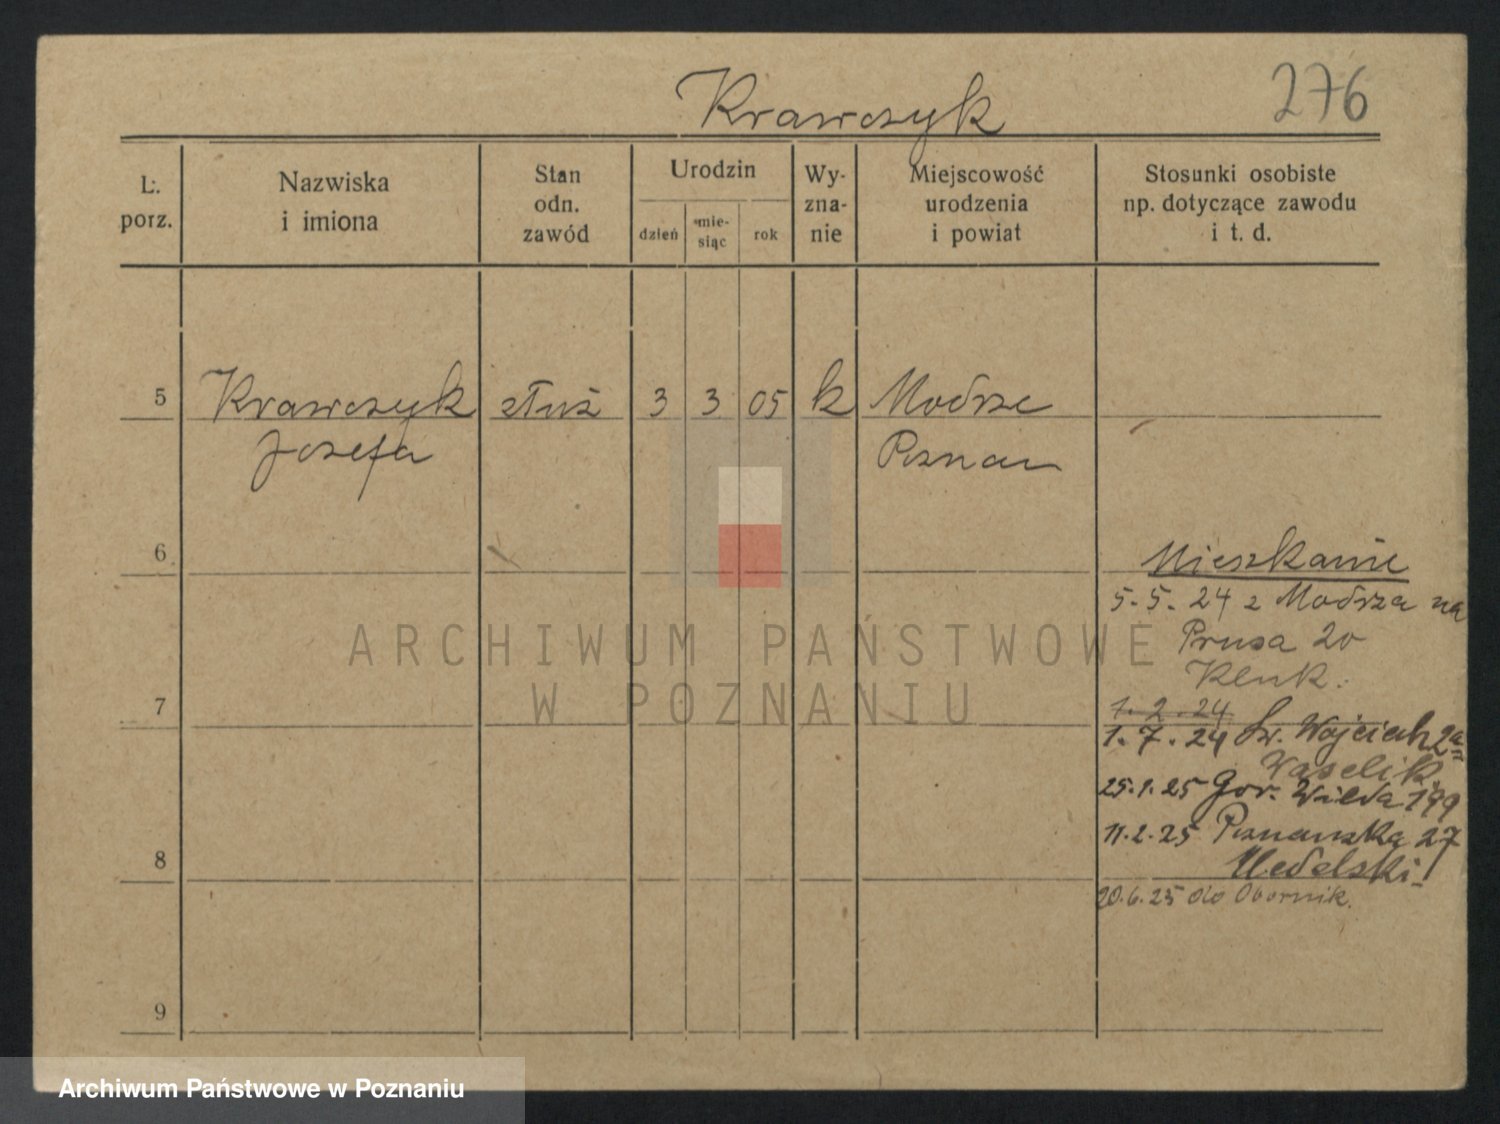 Krawczyk
276
L. porz.
Nazwiska i imiona
Stan odn. zawód
Urodzin
dzień
mie-siąc
rok
Wy-zna-nie
Miejscowość urodzenia i powiat
Stosunki osobiste np. dotyczące zawodu i t. d.
5 Krawczyk służ 3 3 05 k Modrze
Józefa Poznan
6
Mieszkanie
5.5.24 z Modrza na
Prusa 20
Kluk.
7
1.2.24
1.7.24 Św. Wojciech 2a
Waselik.
25.1.25 Gór. Wilda 199
11.2.25 Poznańska 27
8
20.6.25 do Obornik.
9
ARCHIWUM PAŃSTWOWE
W POZNANIU
Archiwum Państwowe w Poznaniu